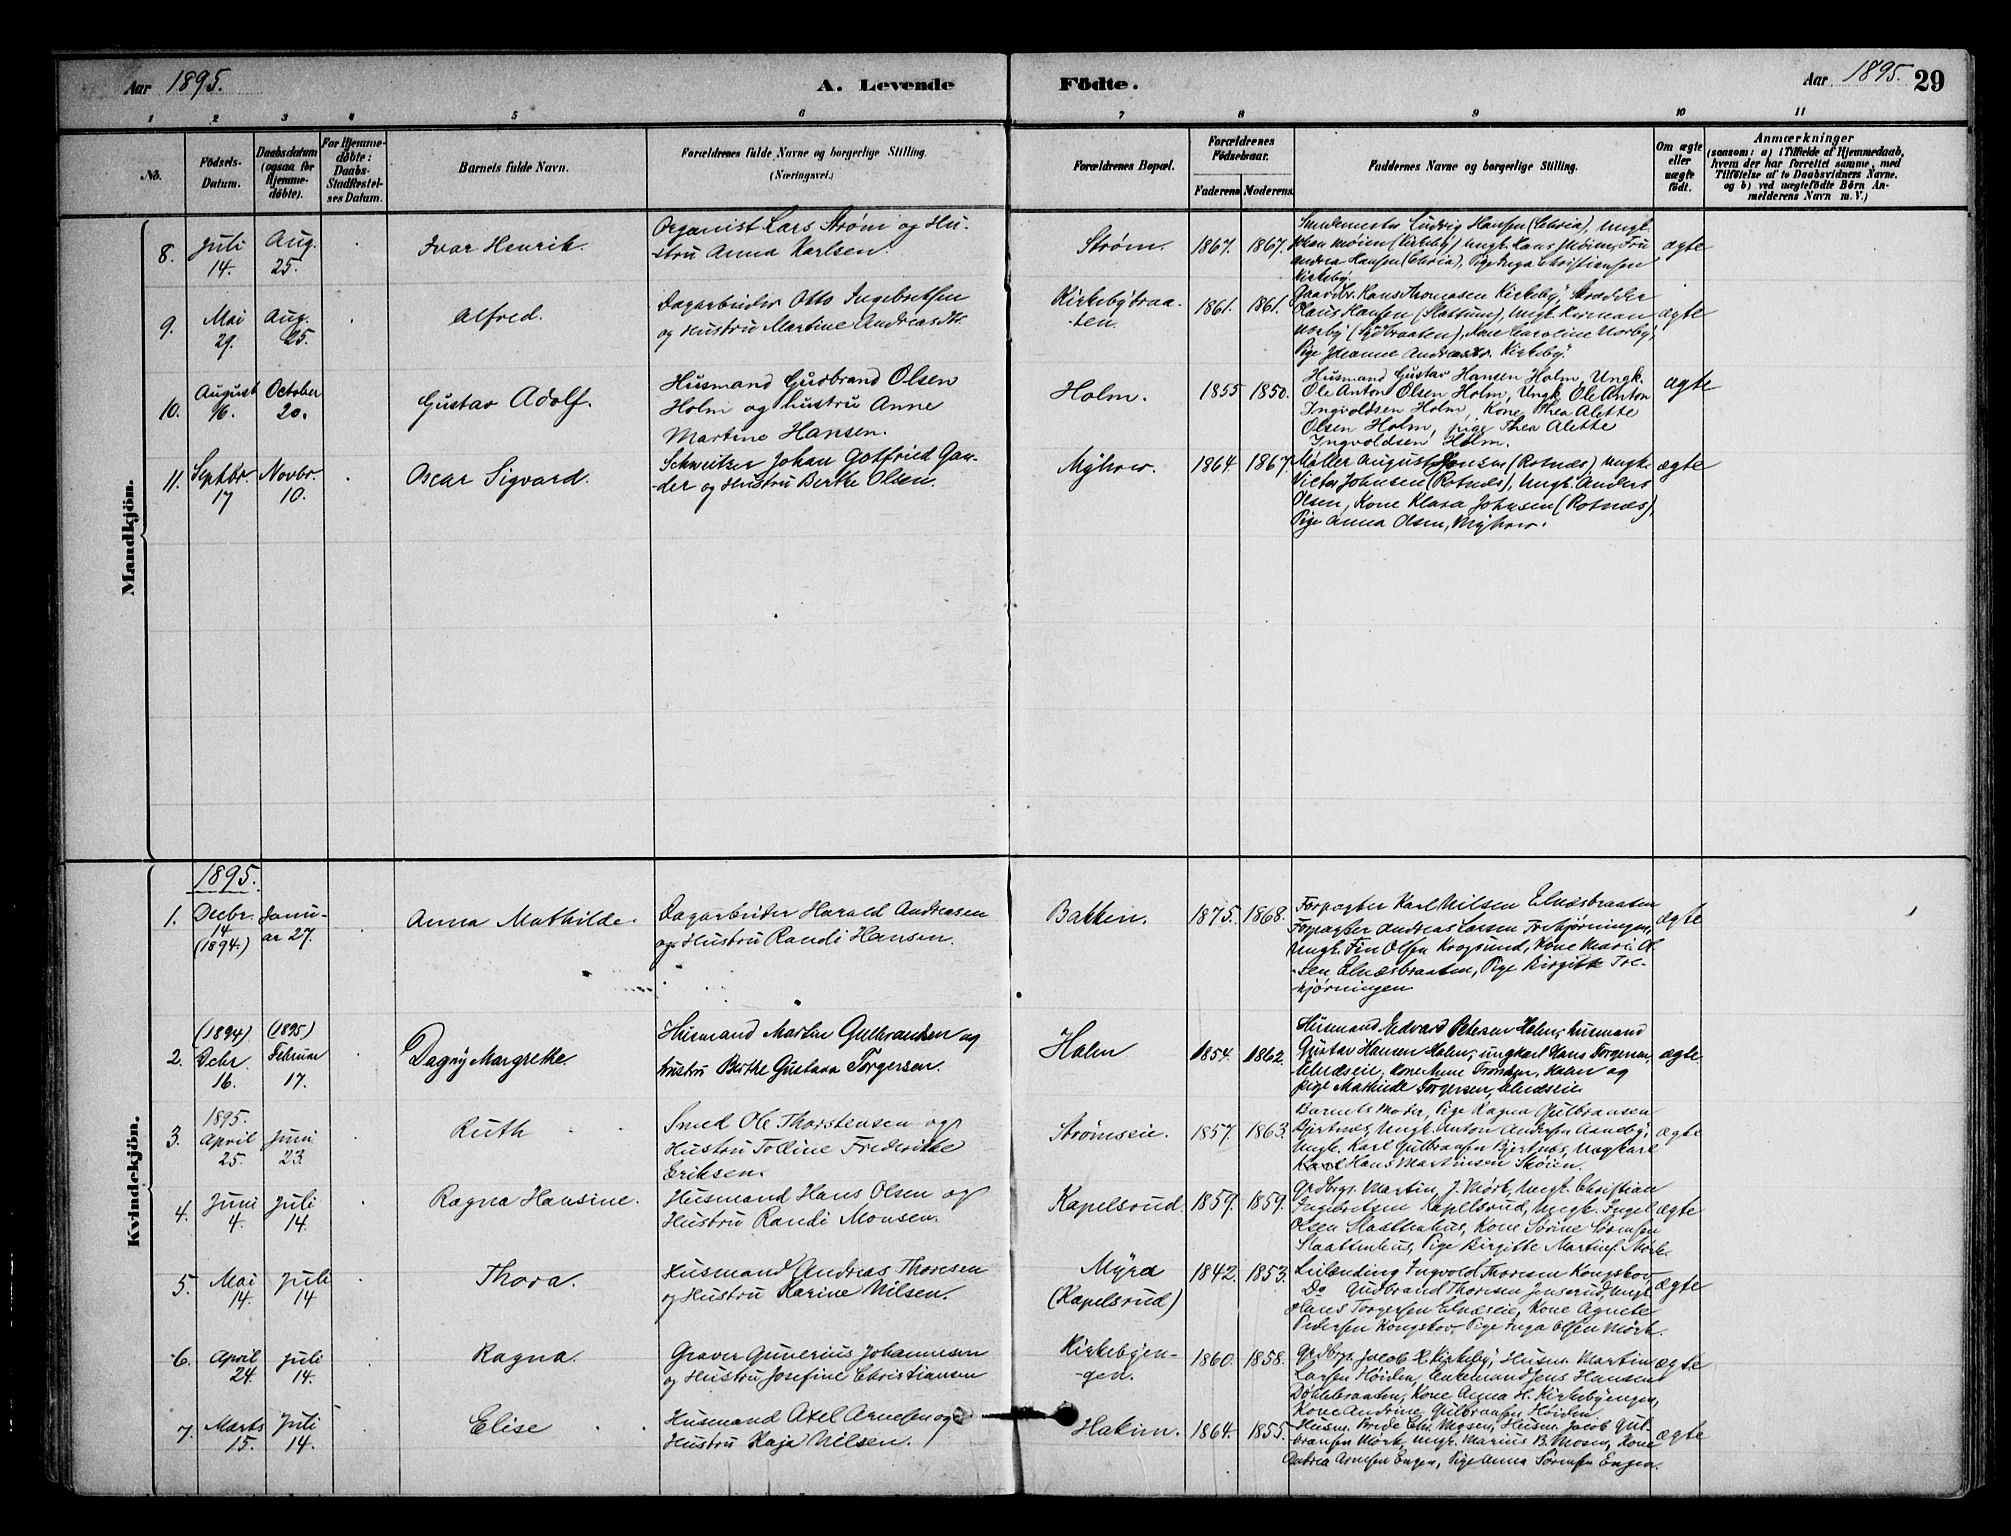 Aar 1895. A. Levende Födte. Aar 1895. 29
1 2 3 4 5 6 7 8 9 10 11
No.
Födsels-
Datum.
Daabsdatum
(ogsaa for
Hjemme-
døbte).
For Hjemme-
døbte:
Daabs-
Stadfæstel-
ses Datum.
Barnets fulde Navn.
Forældrenes fulde Navne og borgerlige Stilling.
(Næringsvei.)
Forældrenes Bopæl.
Forældrenes
Födselsaar.
Faderens Moderens.
Faddernes Navne og borgerlige Stilling.
Om ægte
eller
uægte
födt.
Anmærkninger
(saasom: a) i Tilfælde af Hjemmedaab,
hvem der har forrettet samme, med
Tilföielse af to Daabsvidners Navne.
og b) ved uægtefödte Börn An-
melderens Navn m. V.)
Mandkjön.
8. Juli 14. Aug. 25. Ivar Henrik.
Organist Lars Strøm og Hu-
stru Anna Karlsen.
Strøm. 1867. 1867.
Ludvig Hansen (Chria), Ungk.
Johan Moien (Kirkeby) Ungk. Hans Moien, Fru
Andrea Hansen (Chria), Pige Inga Christiansen
Kirkeby.
ægte
9. Mai 29. Aug. 25. Alfred.
Dagarbeider Otto Ingebretsen
og Hustru Martine Andreasdt.
Kirkebybraa-
ten.
1861. 1861.
Hans Thomasen Kirkeby, Skrædder
Hansen (Slattum), Ungk. Herman
Kone Caroline Norby,
Pige Johanne Kirkeby.
ægte
10. August 6. October 20. Gustav Adolf.
Husmand Gudbrand Olsen
Holm og hustru Anne
Martine Hansen.
Holm. 1855 1850.
Husmand Gustav Hansen Holm, Ungk.
Ole Anton Olsen Holm, Ungk Ole Anton
Ingvoldsen Holm, Kone Thea Alette
Olsen Holm, pige Thea Alette
Ingvoldsen Holm.
ægte
11. Septbr. 17 Novbr. 10. Oscar Sigvard.
Schweitzer Johan Gotfried Gan-
der og Hustru Berthe Olsen.
Myhrer. 1864 1867
Møller August Jensen (Rotnæs), Ungk.
Victor Johnsen (Rotnæs), Ungk. Anders
Olsen, Kone Klara Johnsen (Rotnæs),
Pige Anna Olsen, Myhrer.
ægte
Kvindekjön.
1895.
1. Decbr. 14 (1894.) Janu-
ar 27. Anna Mathilde.
Dagarbeider Harald Andreasen
og Hustru Randi Hansen.
Bakken. 1875. 1868.
Forpagter Karl Nilsen Elnæsbraaten
Forpagter Andreas Larsen Trehjørningen,
Ungk. Fin Olsen Krogsund, Kone Marie Ol-
sen Elnæsbraaten, Pige Birgitte Tre-
hjørningen
ægte
2. (1894) Debr. 16. (1895) Februar 17. Dagny Margrethe.
Husmand Martin Gulbrandsen og
hustru Berthe Gustava Torgersen.
Holm 1854. 1862.
Husmand Edvard Petersen Holm, husmand
Gustav Hansen Holm, ungkarl Hans Torgersen,
Elnæseie, kone Anne Holm og
pige Mathilde Torgersen, Elnæseie
ægte.
3. 1895. April 25. Juni 23. Ruth
Smed Ole Thorstensen og
Hustru Tolline Frederikke
Eriksen.
Strømseie. 1857. 1863.
Barnets Moder, Pige Ragna Gulbransen
Bjertnæs, Ungk. Anton Andersen Aaneby,
Ungk. Karl Gulbransen Bjertnæs, Ungkarl
Hans Martinsen Skøien.
ægte
4. Juni 4. Juli 14. Ragna Hansine.
Husmand Hans Olsen og
Hustru Randi Monsen.
Kapelsrud. 1859. 1859.
Grdbrg. Martin J. Mørk, Ungk. Christian
Ingebretsen Kapelsrud, Ungk. Ingel
Olsen Slaattenhus, Kone Sørine Sørensen
Slaattenhus, Pige Birgitte Martins. Mørk.
ægte
5. Mai 14. Juli 14 Thora.
Husmand Andreas Thoresen
og Hustru Karine Nilsen.
Myra
(Kapelsrud)
1842. 1853.
Leilænding Ingvold Thoresen Kongskov,
Do Gudbrand Thoresen Jonsrud, Ungk.
Hans Torgersen Elnæseie, Kone Agnete
Pedersen Kongskov, Pige Inga Olsen Mørk.
ægte
6. April 24. Juli 14. Ragna.
Graver Gunerius Johannesen
og Hustru Josefine Christiansen
Kirkebyen-
gen.
1860. 1858.
Grdbrg. Jacob H. Kirkeby, Husm. Martin
Larsen Høiden, Enkemand Jens Hansen
Døhlebraaten, Kone Anna H. Kirkebyengen,
Kone Andrine Gulbransen Høiden.
ægte
7. Marts 15. Juli 14. Elise
Husmand Axel Arnesen og
Hustru Kaja Nilsen.
Hakim. 1864. 1855.
Husm. Mosen, Husm. Jacob Gul-
bransen Mørk, Ungk. Marius B. Mosen, Kone
Andrea Arnesen Engen, Pige Anna Sørensen Engen.
ægte